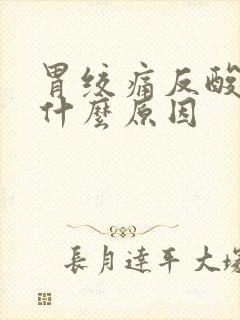 胃绞痛反酸
什麼原因
長月達平大塚